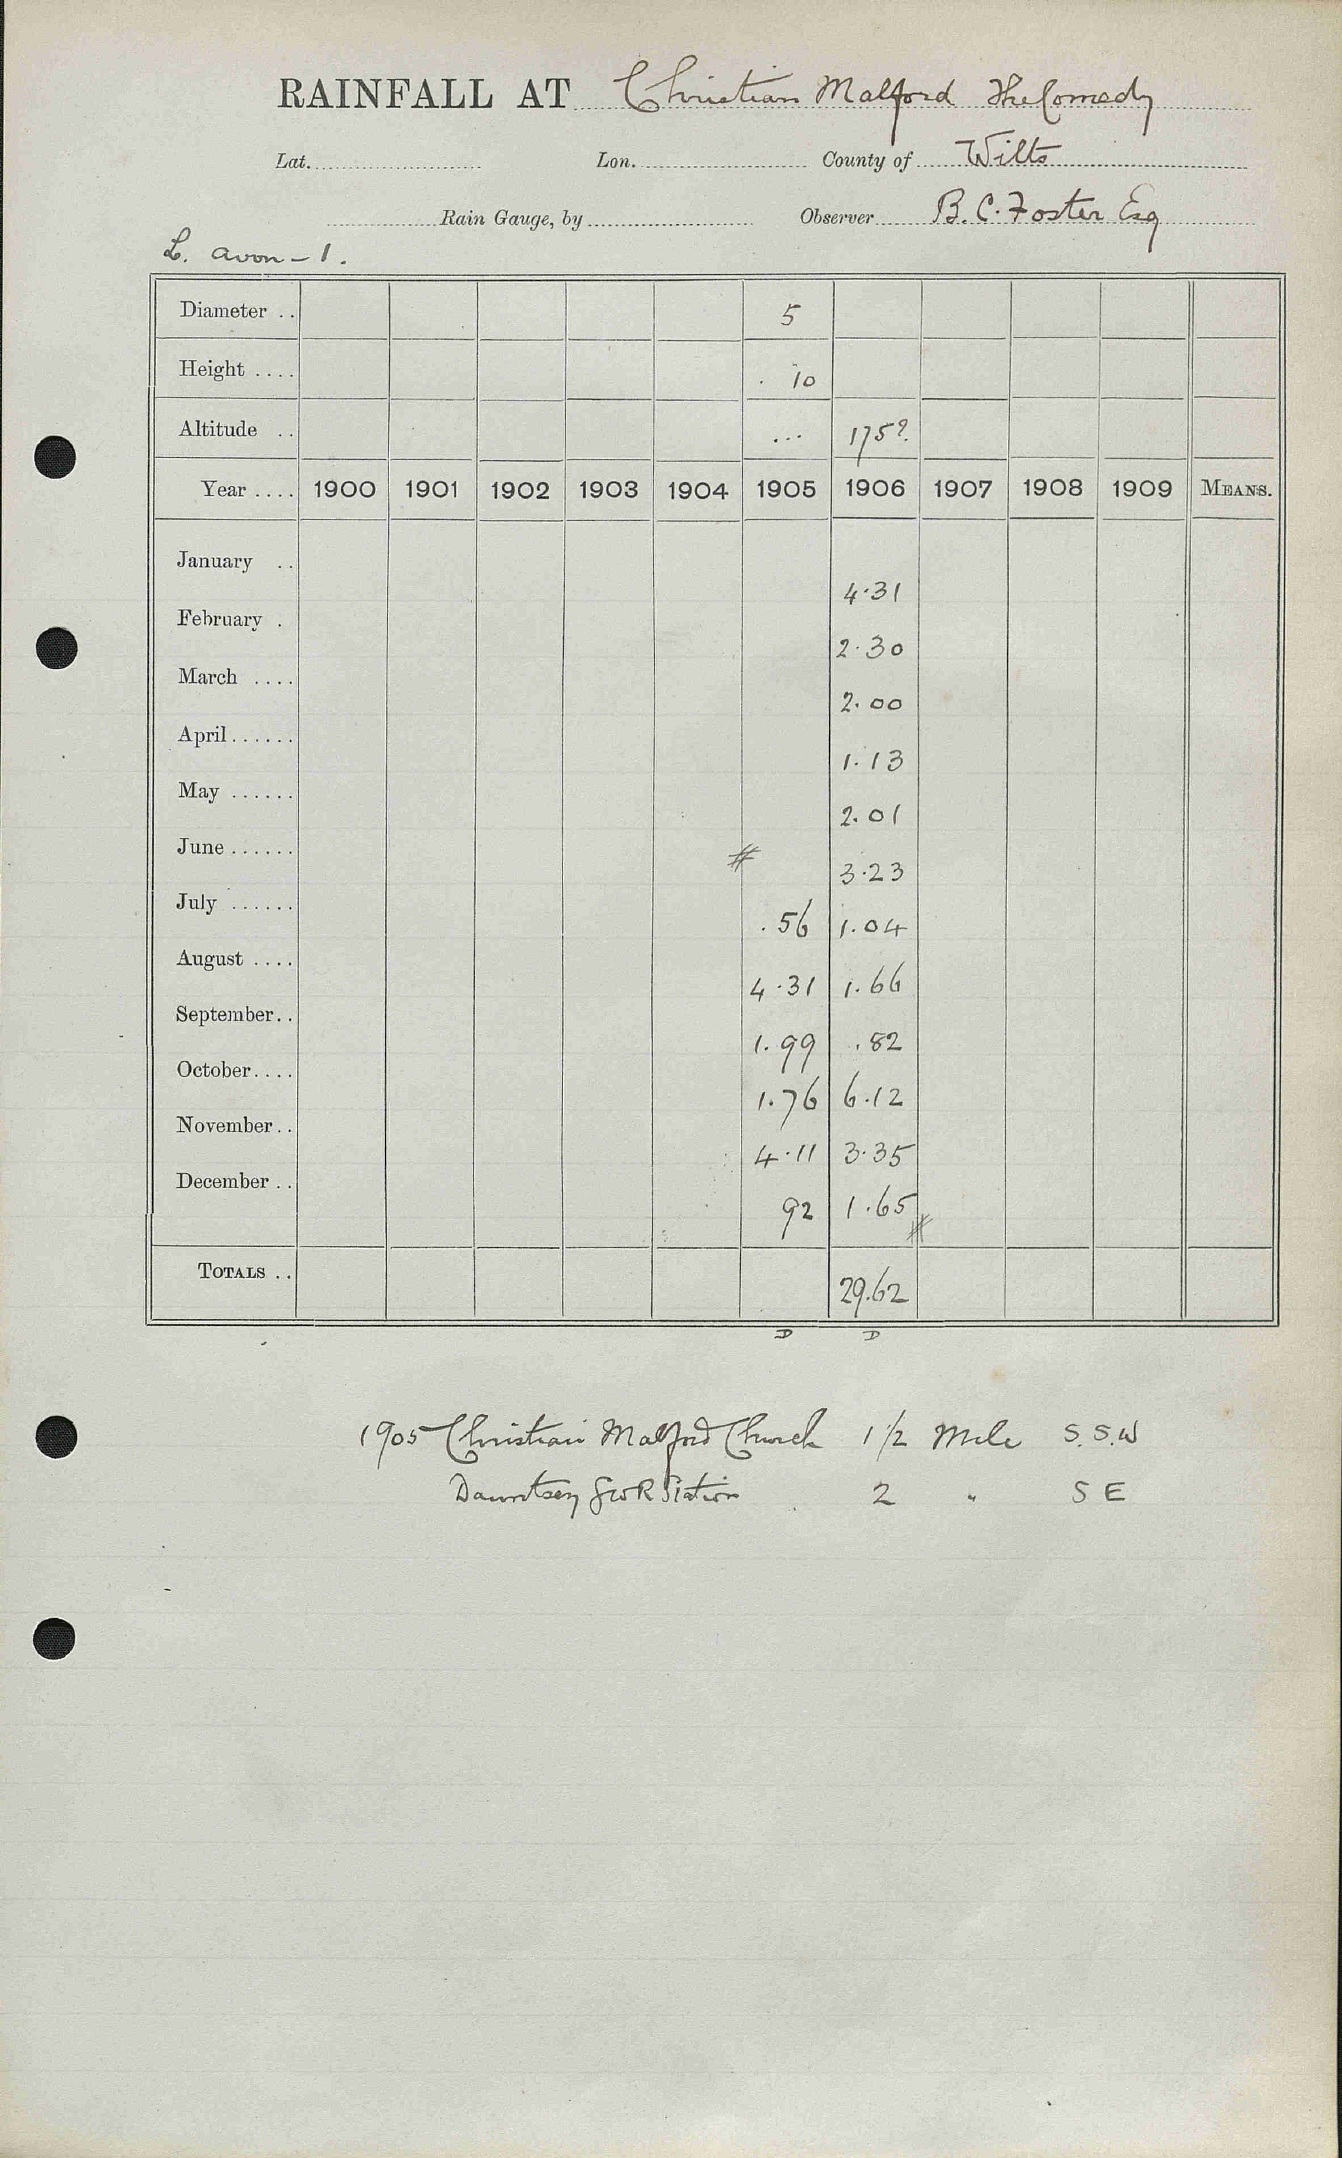 RAINFALL AT Christian Malford The Comedy
Lat. Lon. County of Wilts
Rain Gauge, by Observer B. C. Foster Esq
L. Avon - 1.
Diameter .. 5
Height .... . 10
Altitude .. ... 175?
Year .... 1900 1901 1902 1903 1904 1905 1906 1907 1908 1909 MEANS.
January ..
4.31
February .
2.30
March ....
2.00
April......
1.13
May ......
2.01
June ...... #
3.23
July ......
.56 1.04
August ....
4.31 1.66
September..
1.99 .82
October....
1.76 6.12
November..
4.11 3.35
December ..
92 1.65 #
TOTALS .. 29.62
D D
1905 Christian Malford Church 1 1/2 Mile S.S.W
Dauntsey GWR Station 2 " S E